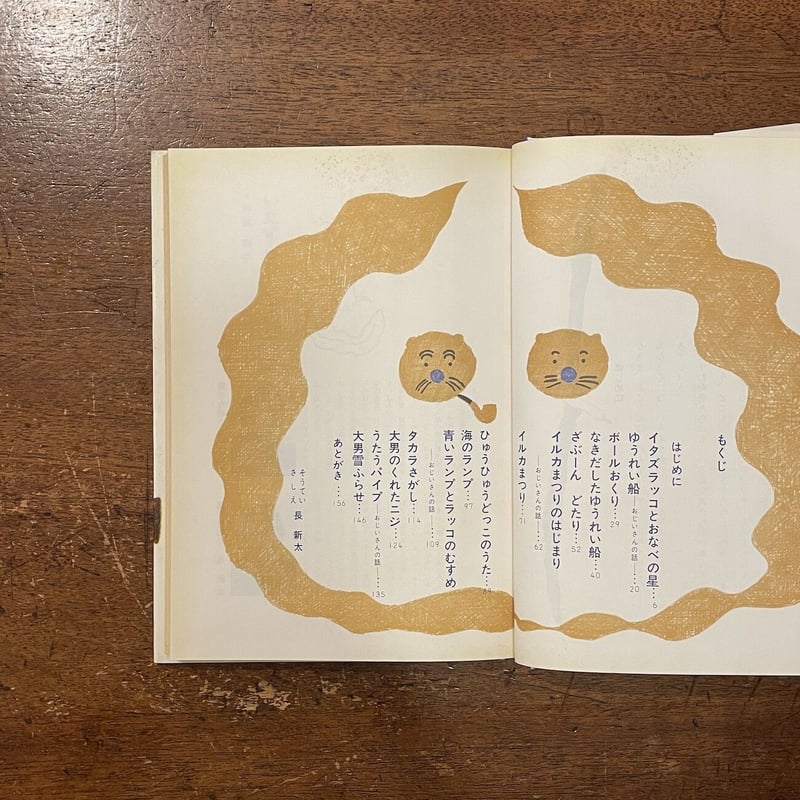 もくじ
はじめに
イタズラッコとおなべの星…6
ゆうれい船――おじいさんの話――…20
ボールおくり…29
なきだしたゆうれい船…40
ざぶーん どたり…52
イルカまつりのはじまり
――おじいさんの話――…62
イルカまつり…71
ひゅうひゅうどっこのうた…
海のランプ…97
青いランプとラッコのむすめ
――おじいさんの話――…109
タカラさがし…114
大男のくれたニジ…124
うたうパイプ――おじいさんの話――…135
大男雪ふらせ…146
あとがき…156
そうてい
さしえ
長 新太